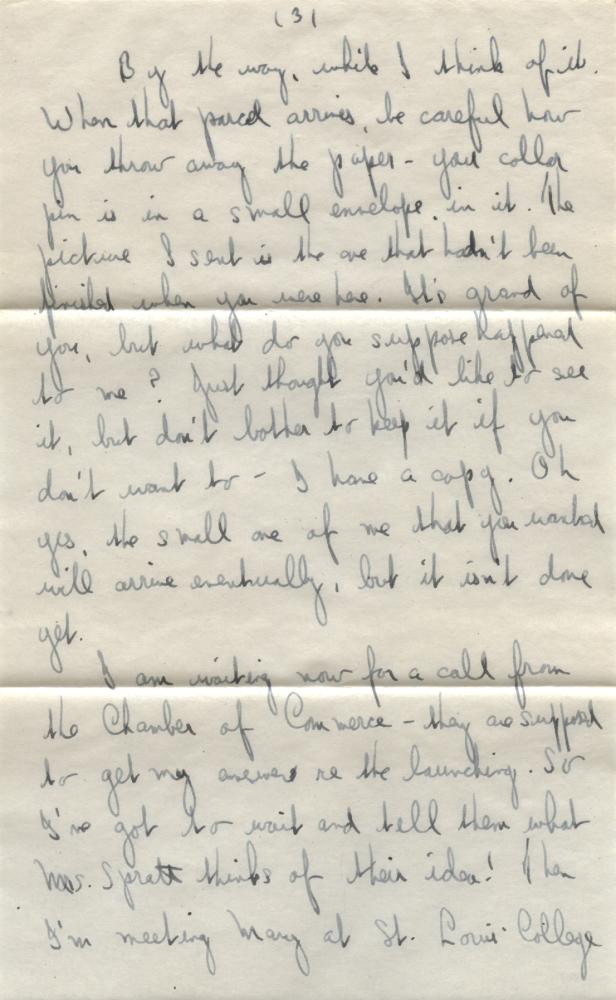 (3)
By the way, while I think of it.
When that parcel arrives, be careful how
you throw away the paper - your collar
pin is in a small envelope in it. The
picture I sent is the one that hadn't been
finished when you were here. It's grand of
you, but what do you suppose happened
to me? Just thought you'd like to see
it, but don't bother to keep it if you
don't want to - I have a copy. Oh
yes, the small one of me that you wanted
will arrive eventually, but it isn't done
yet.
I am waiting now for a call from
the Chamber of Commerce - they are supposed
to get my answer re the launching. So
I've got to wait and tell them what
Mrs. Spratt thinks of their idea! Then
I'm meeting Mary at St. Louis College